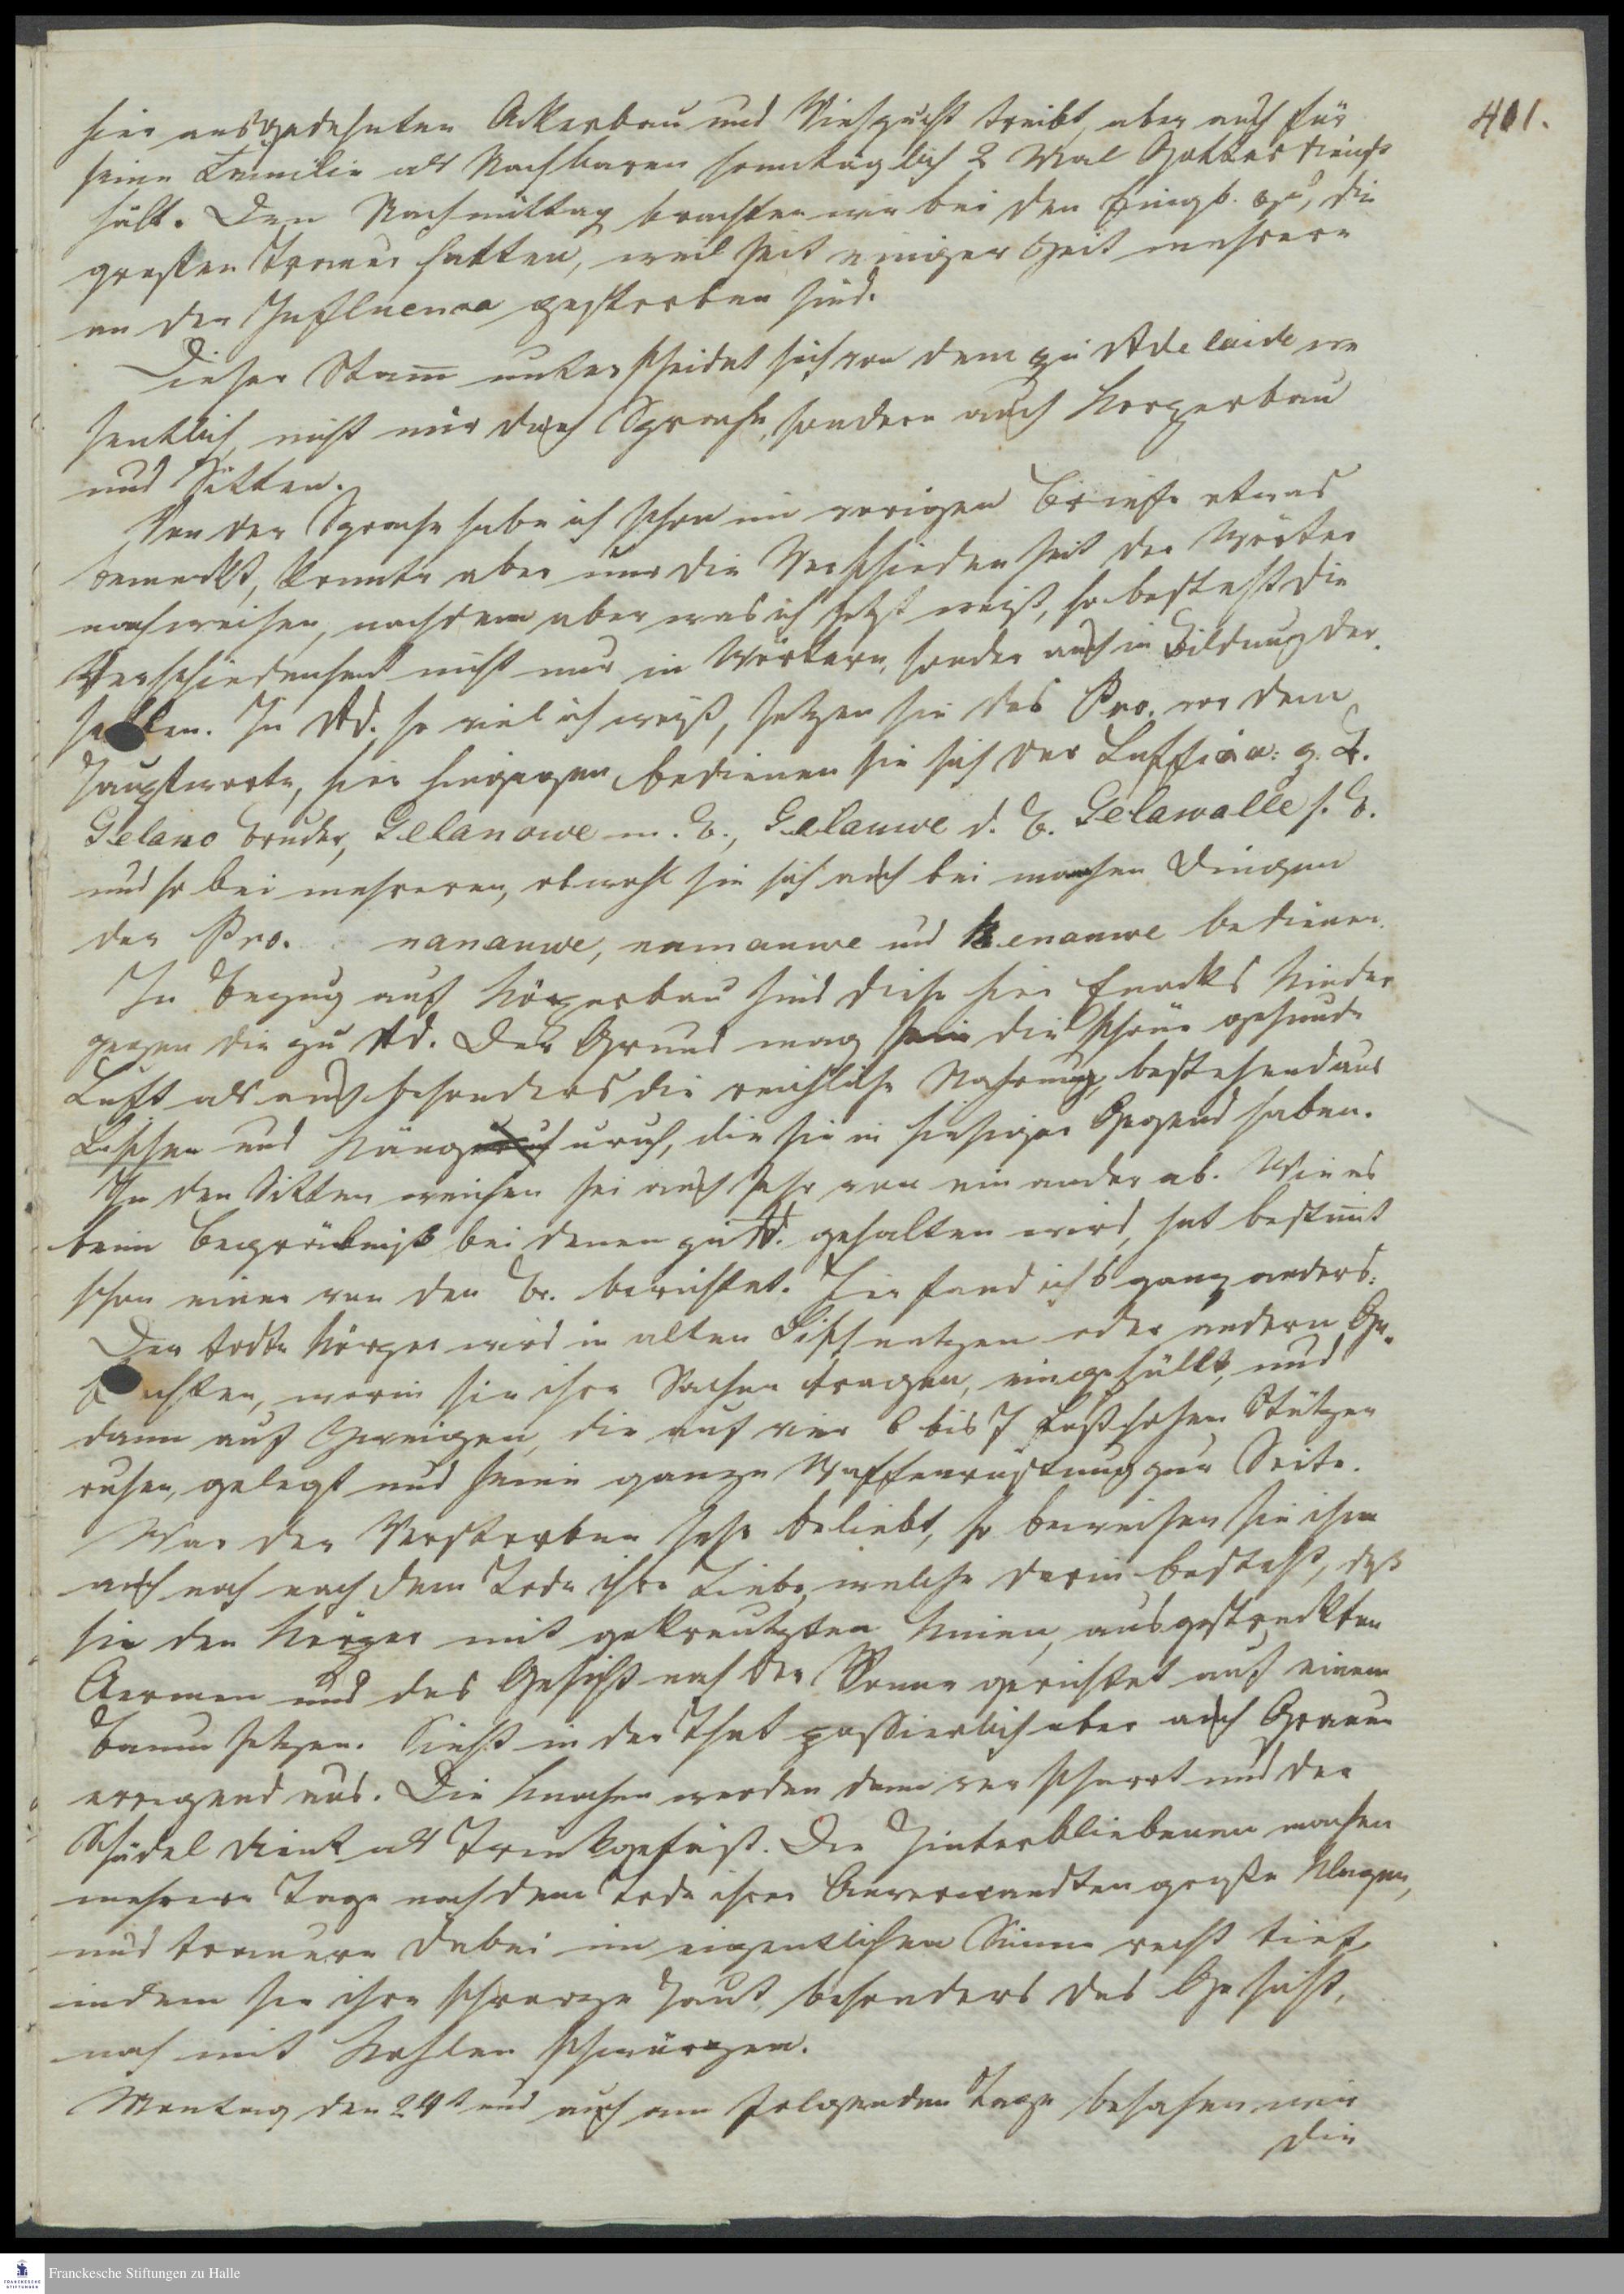 401.
hier ausgedehnten Ackerbau und Viehzucht treibt, aber auch für
seine Familie als Nachbaren sonntäglich 2 Mal Gottesdienst
hält. Den Nachmittag brachten wir bei den Eingb. zu, die
großen Trauer hatten, weil seit einiger Zeit mehrere
an der Influenza gestorben sind.
Dieser Stam̅ unterscheidet sich von dem zu Adelaide we
sentlich, nicht nur durch Sprache, sondern auch Körperbau
und Sitten.
Von der Sprache habe ich schon im vorigen Briefe etwas
bemerkt, konnte aber nur die Verschiedenheit der Wörter
nachweisen, nachdem aber was ich jetzt weiß, so besteht die
Verschiedenheit nicht nur in Wörtern, sonder auch in Bildung der
selben. In Ad. so viel ich weiß, setzen sie das Pro. vor dem
Hauptworte, hier hingegen bedienen sie sich der z. B.
Gelano Bruder, Gelanowe m. B., Gelauwe d. B. Gelawalle s. B.
und so bei mehreren, obwohl sie sich auch bei manchen Dingen
der Pro. nanauwe, namauwe und kenauwe bedienen.
In Bezug auf Körperbau sind diese hier Enacks Kinder
gegen die zu Ad. Der Grund mag sein die schöne gesunde
Luft als auch besonders die reichliche Nahrung, bestehend aus
Fischen und Känguruh, die sie in hiesiger Gegend haben.
In den Sitten weichen sie auch sehr von einander ab. Wie es
beim Begräbniß bei denen zu Ad. gehalten wird, hat bestim̅t
schon einer von den Br. berichtet. Hier fand ichs ganz anders:
Der todte Körper wird in alten Fischnetzen oder andern Ge¬
flechten, worin sie ihre Sachen tragen, eingehüllt, und
dann auf Zweigen, die auf vier 6 bis 7 Fuß hohen Stützen
ruhen, gelegt und seine ganze Waffenrüstung zur Seite.
War der Verstorben sehr beliebt, so beweisen sie ihm
auch noch nach dem Tode ihre Liebe, welche darin besteht, daß
sie den Körper mit gekreutzten Knien, ausgestreckten
Aermen und das Gesicht nach der Sonne gerichtet auf einen
Baum setzen. Sieht in der That possierlich aber auch Grauen
erregend aus. Die Knochen werden dann verscharrt und der
Schädel dient als Trinkgefäß. Die Hinterbliebenen machen
mehrere Tage nach dem Tode ihrer Anverwandten große Klagen,
und trauern dabei im eigentlichen Sinne recht tief,
indem sie ihre schwarze Haut, besonders das Gesicht,
noch mit Kohlen schwärzen.
Montag den 24t und auch am folgenden Tage besahen wir
die
FRANCKESCHE STIFTUNGEN
Franckesche Stiftungen zu Halle